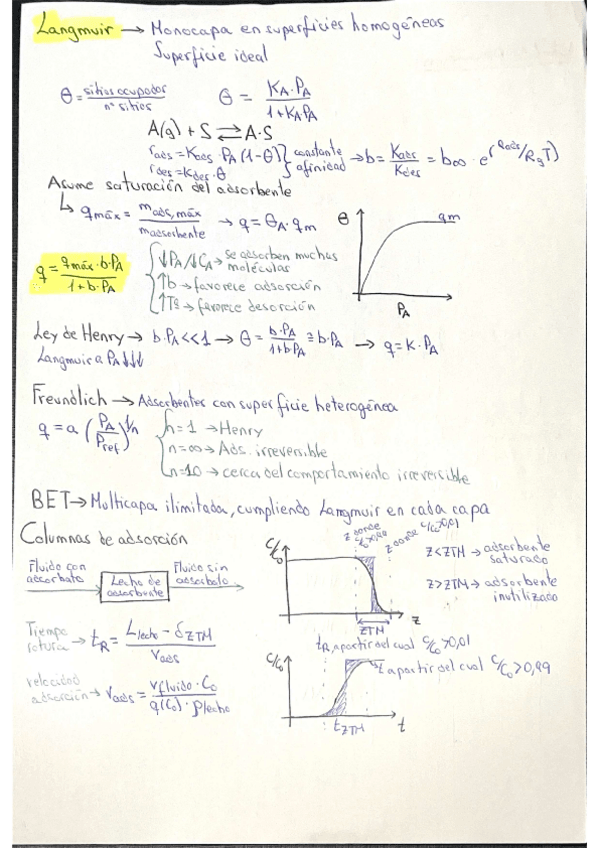 Langmuir → Monocapa en superficies homogéneas
Superficie ideal
θ = sitios ocupados / nº sitios    θ = K_A·P_A / 1+K_A·P_A
A(g) + S ⇄ A·S
r_ads = K_ads · P_A (1-θ) } constante → b = K_ads / K_des = b∞ · e^(Q_ads/R_gT)
r_des = K_des · θ } afinidad
Asume saturación del adsorbente
↳ q_máx = m_ads,máx / m_adsorbente → q = θ_A · q_m
θ
q_m
P_A
q = q_máx · b · P_A / 1 + b · P_A
↓P_A/↓C_A → se adsorben muchas moléculas
↑b → favorece adsorción
↑Tª → favorece desorción
Ley de Henry → b·P_A << 1 → θ = b·P_A / 1+b·P_A ≅ b·P_A → q = K·P_A
Langmuir a P_A ↓↓↓
Freundlich → Adsorbentes con superficie heterogénea
q = a (P_A / P_ref)^1/n
n = 1 → Henry
n = ∞ → Ads. irreversible
n = 10 → cerca del comportamiento irreversible
BET → Multicapa ilimitada, cumpliendo Langmuir en cada capa
Columnas de adsorción
Fluido con adsorbato
Lecho de adsorbente
Fluido sin adsorbato
C/C₀
z donde C/C₀>0,99
z donde C/C₀>0,01
z < ZTM → adsorbente saturado
z > ZTM → adsorbente inutilizado
z
ZTM
Tiempo rotura → t_R = L_lecho - δ_ZTM / v_ads
t_R, a partir del cual C/C₀>0,01
C/C₀
t a partir del cual C/C₀>0,99
velocidad adsorción → v_ads = v_fluido · C₀ / q(C₀) · ρ_lecho
t_ZTM
t